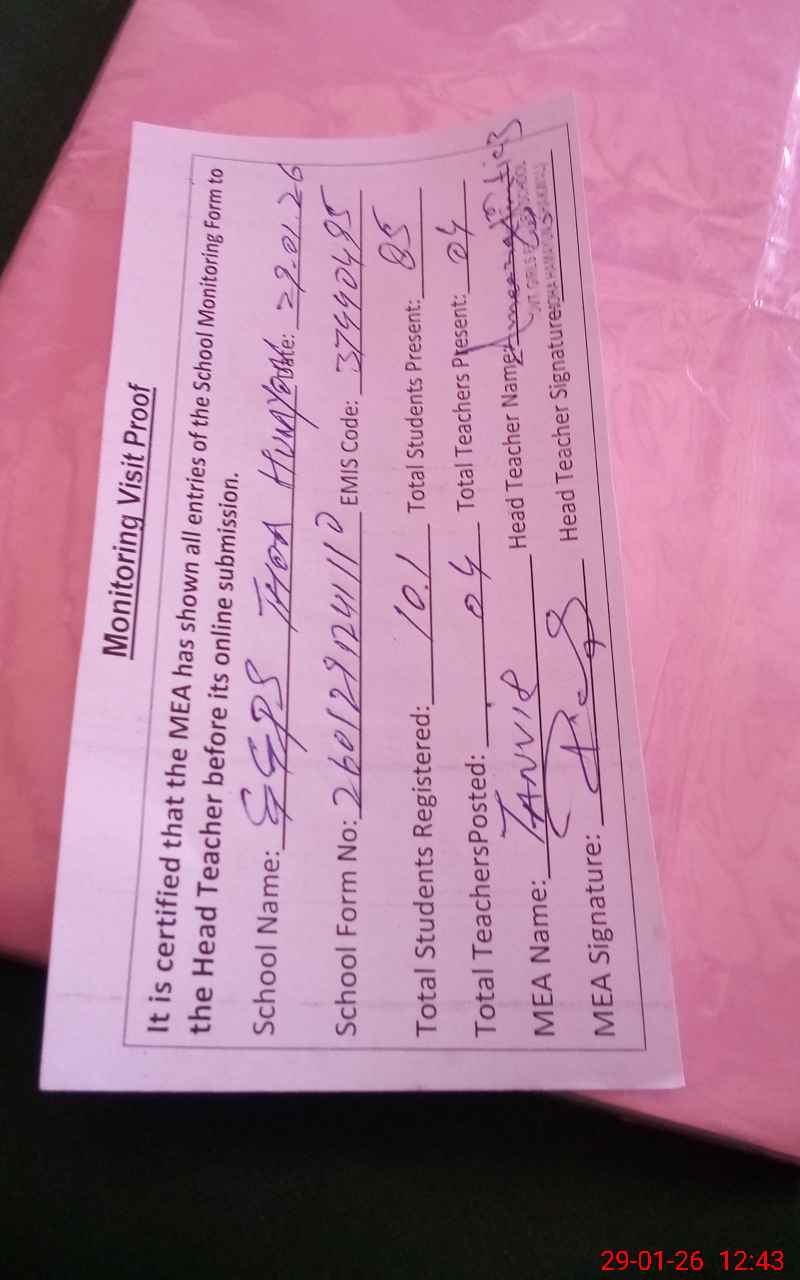 Monitoring Visit Proof
It is certified that the MEA has shown all entries of the School Monitoring Form to
the Head Teacher before its online submission.
School Name: GGPS THOA HUMYOUN Date: 29.01.26
School Form No: 260129124111D EMIS Code: 37440495
Total Students Registered: 101 Total Students Present: 85
Total TeachersPosted: 04 Total Teachers Present: 04
MEA Name: TANVIR Head Teacher Name:
MEA Signature: Head Teacher Signature:
29-01-26 12:43